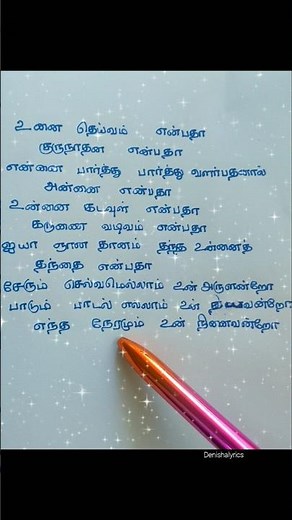 உனை தெய்வம் என்பதா
குருநாதன் என்பதா
என்னை பார்த்து பார்த்து வளர்பதனால்
அன்னை என்பதா
உன்னை கடவுள் என்பதா
கருணை வடிவம் என்பதா
ஐயா ஞான தானம் தந்த உன்னைத்
தந்தை என்பதா
சேரும் செல்வமெல்லாம் உன் அருளன்றோ
பாடும் பாடல் எல்லாம் உன்
எந்த நேரமும் உன் நினைவன்றோ
Denishalyrics